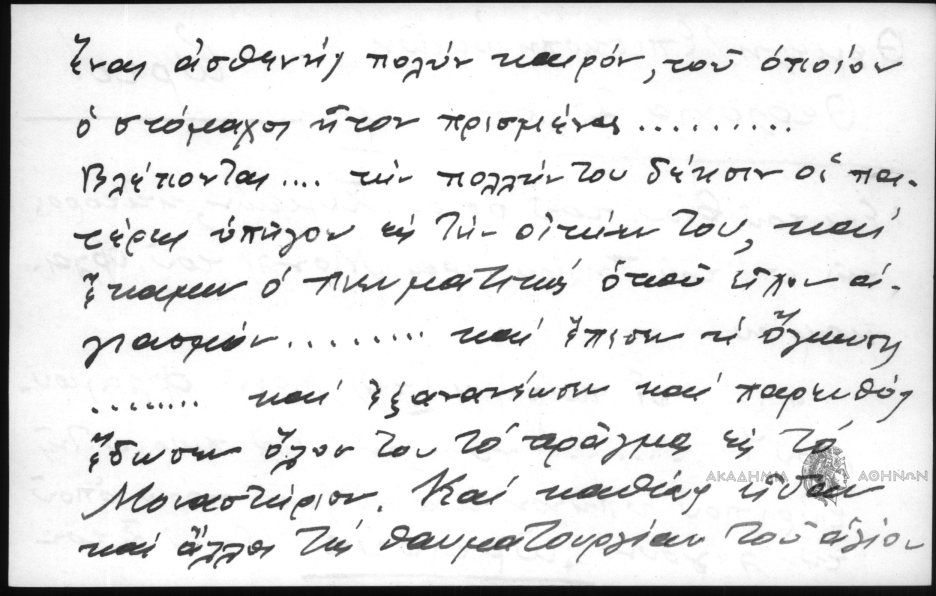 ἕνας ἀσθενής πολύν καιρόν, τοῦ ὁποίον
ὁ στόμαχος ἦτον πρισμένος.........
Βλέποντας.... τήν πολλήν του δέησιν οἱ πα-
τέρες ὑπῆγον εἰς τήν οἰκίαν του, καί
ἔκαμεν ὁ πνευματικός ὁποῦ εἶχον ἁ-
γιασμόν......... καί ἔπεσεν ἡ ὄγκωσις
........ καί ἐξανανέωσεν καί παρευθύς
ἔδωσεν ὅλον του τό πρᾶγμα εἰς τό
Μοναστήριον. Καί καθώς εἶδαν
καί ἄλλοι τήν θαυματουργίαν τοῦ ἁγίου
ΑΚΑΔΗΜΙΑ ΑΘΗΝΩΝ